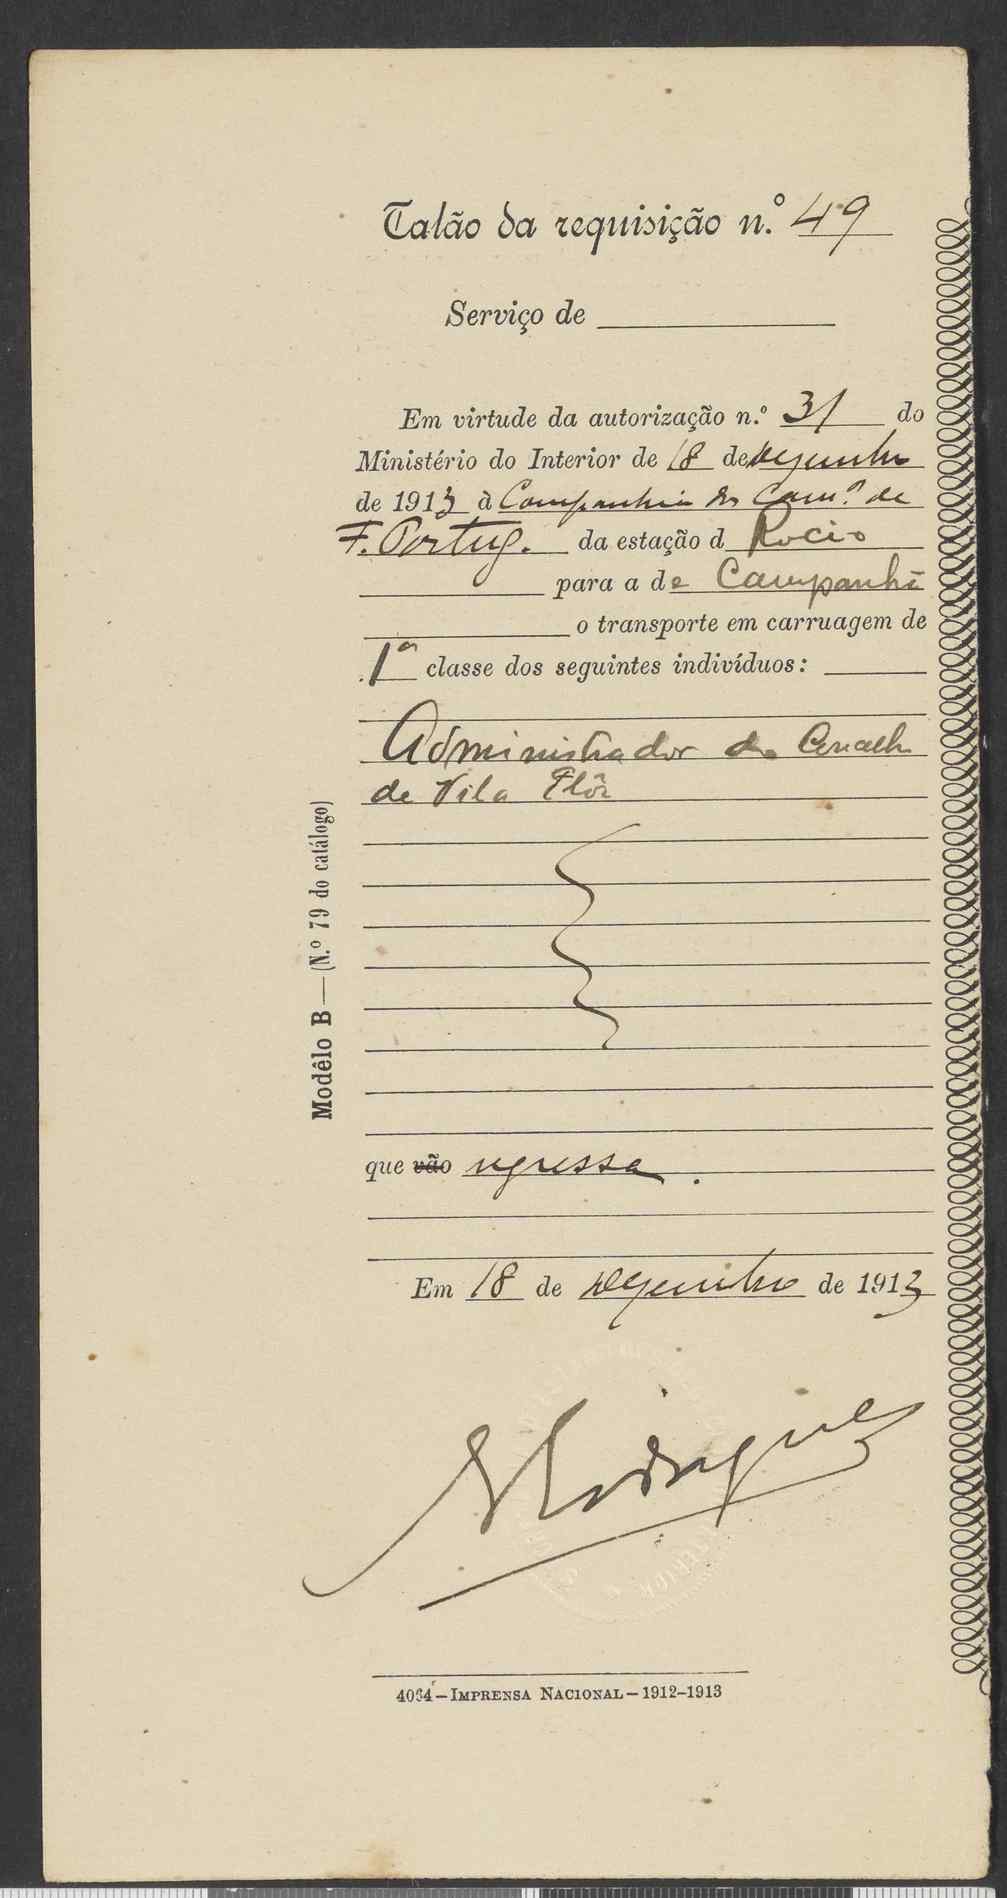 Talão da requisição n.º 49
Serviço de
Em virtude da autorização n.º 31 do
Ministério do Interior de 18 de Dezembro
de 1913 à Companhia dos Cam.º de
F. Portug. da estação d Rocio
para a de Campanhã
o transporte em carruagem de
1ª classe dos seguintes indivíduos:
Administrador do Concelho
de Vila Flôr
que vão regressa.
Em 18 de Dezembro de 1913
Rodrigues
4034—IMPRENSA NACIONAL—1912-1913
Modêlo B—(N.º 79 do catálogo)
INTERIOR